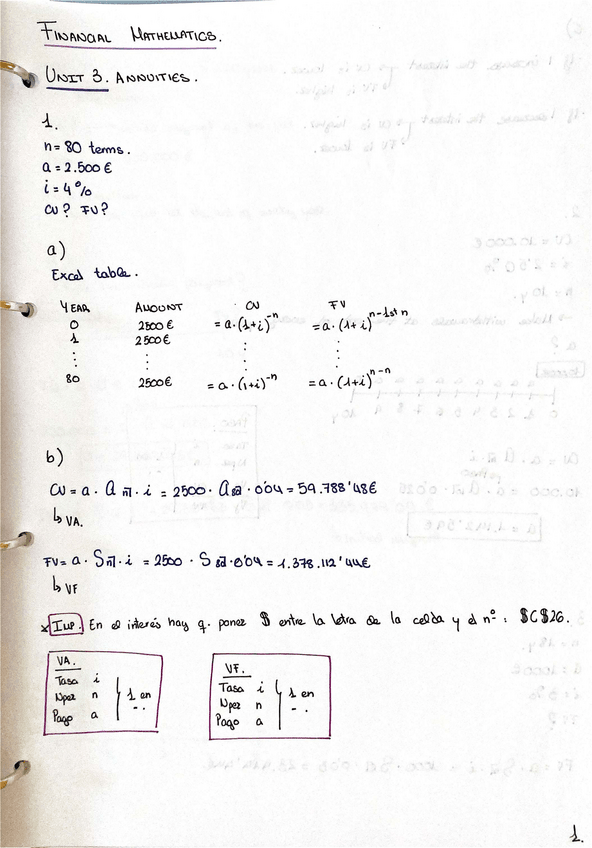 FINANCIAL MATHEMATICS.
UNIT 3. ANNUITIES.
1.
n = 80 terms.
a = 2.500 €
i = 4 %
CV? FV?
a)
Excel table.
YEAR AMOUNT CV FV
0 2500 € = a · (1+i)^-n = a · (1+i)^n-1st n
1 2500 €
⋮ ⋮ ⋮ ⋮
80 2500 € = a · (1+i)^-n = a · (1+i)^n-n
b)
CV = a · A n̅| · i = 2500 · A 80̅| · 0'04 = 59.788'48 €
↳ VA.
FV = a · S n̅| · i = 2500 · S 80̅| · 0'04 = 1.378.112'44 €
↳ VF
* Imp. En el interés hay q. poner $ entre la letra de la celda y el nº : $C$26.
VA.
Tasa i
Nper n
Pago a
1 en -.
VF.
Tasa i
Nper n
Pago a
1 en -.
1.